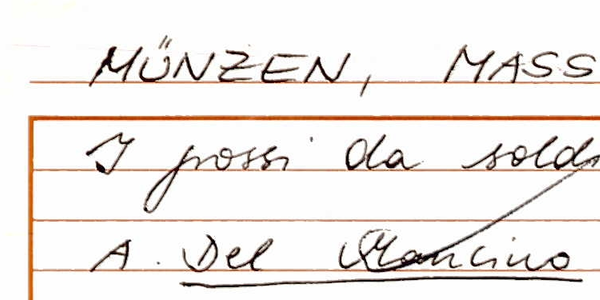 MÜNZEN, MASS
I possi da sold
A. Del Mancino